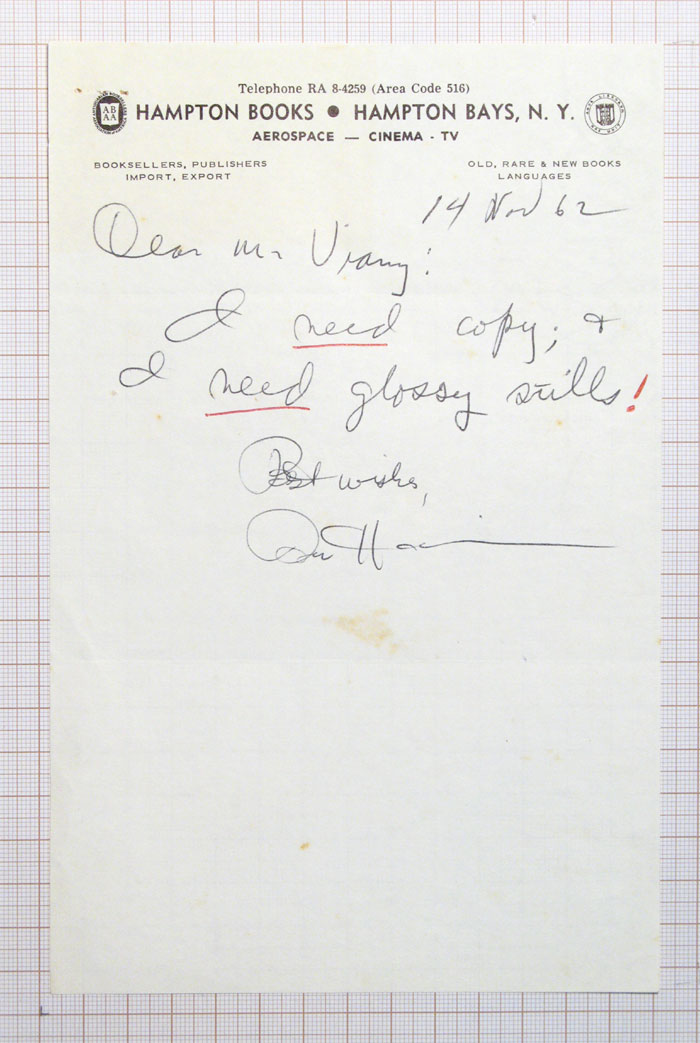 Telephone RA 8-4259 (Area Code 516)
ABAA
HAMPTON BOOKS • HAMPTON BAYS, N. Y.
AEROSPACE — CINEMA - TV
BOOKSELLERS, PUBLISHERS
IMPORT, EXPORT
OLD, RARE & NEW BOOKS
LANGUAGES
14 Nov 62
Dear Mr Vrany:
I need copy; &
I need glossy stills!
Best wishes,